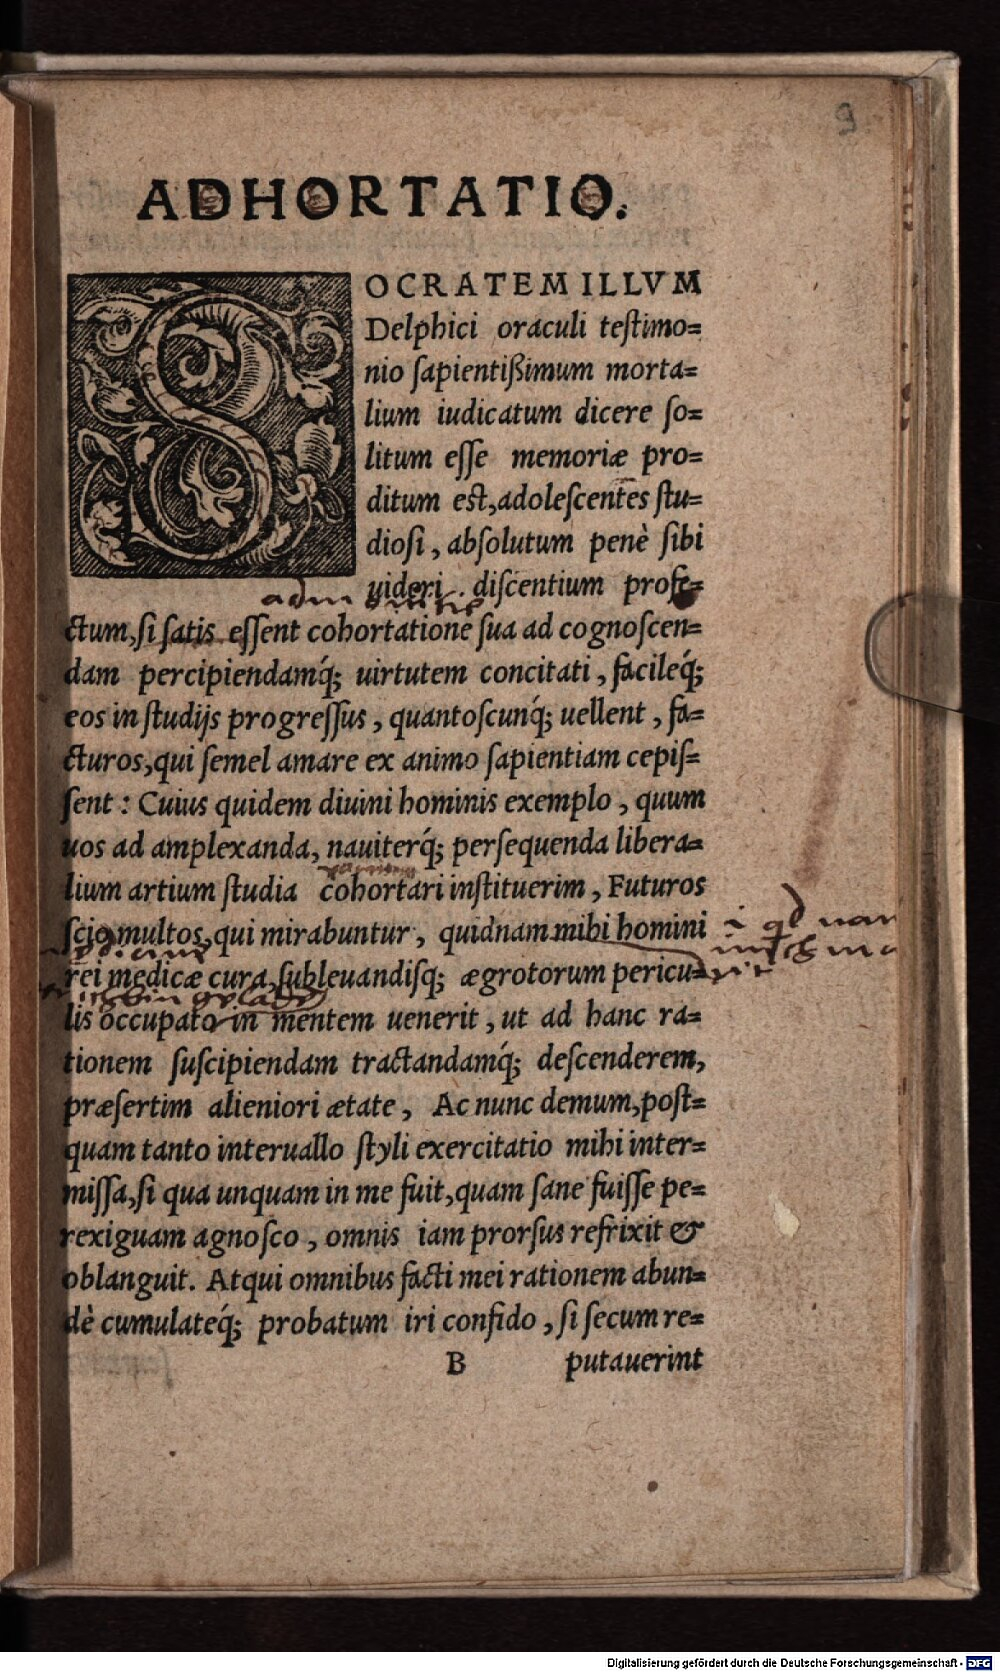 9
ADHORTATIO.
SOCRATEM ILLVM
Delphici oraculi testimo=
nio sapientißimum morta=
lium iudicatum dicere so=
litum esse memoriæ pro=
ditum est, adolescentes stu=
diosi, absolutum penè sibi
uideri discentium profe=
ctum, si satis essent cohortatione sua ad cognoscen=
dam percipiendamq́; uirtutem concitati, facileq́;
eos in studijs progressus, quantoscunq́; uellent, fa=
cturos, qui semel amare ex animo sapientiam cepis=
sent: Cuius quidem diuini hominis exemplo, quum
uos ad amplexanda, nauiterq́; persequenda libera=
lium artium studia cohortari instituerim, Futuros
scio multos, qui mirabuntur, quidnam mihi homini
rei medicæ cura, subleuandisq; ægrotorum pericu=
lis occupato in mentem uenerit, ut ad hanc ra=
tionem suscipiendam tractandamq́; descenderem,
præsertim alieniori ætate, Ac nunc demum, post=
quam tanto interuallo styli exercitatio mihi inter=
missa, si qua unquam in me fuit, quam sane fuisse pe=
rexiguam agnosco, omnis iam prorsus refrixit &
oblanguit. Atqui omnibus facti mei rationem abun=
dè cumulateq́; probatum iri confido, si secum re=
B putauerint
Digitalisierung gefördert durch die Deutsche Forschungsgemeinschaft - DFG